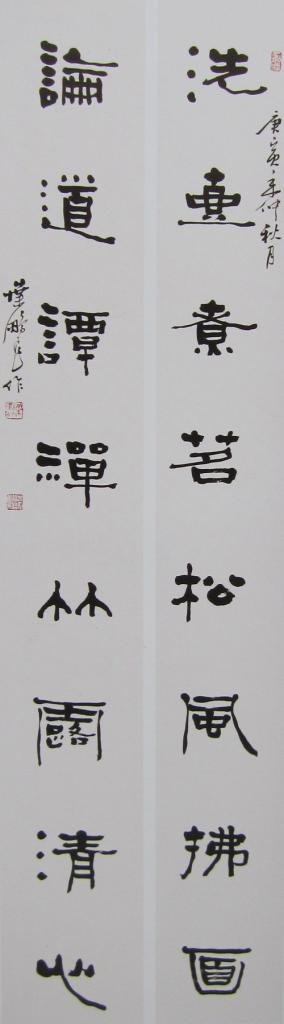 洗壺煮茗松風拂面
庚寅年仲秋月
論道譚禪竹露清心
葉鵬作